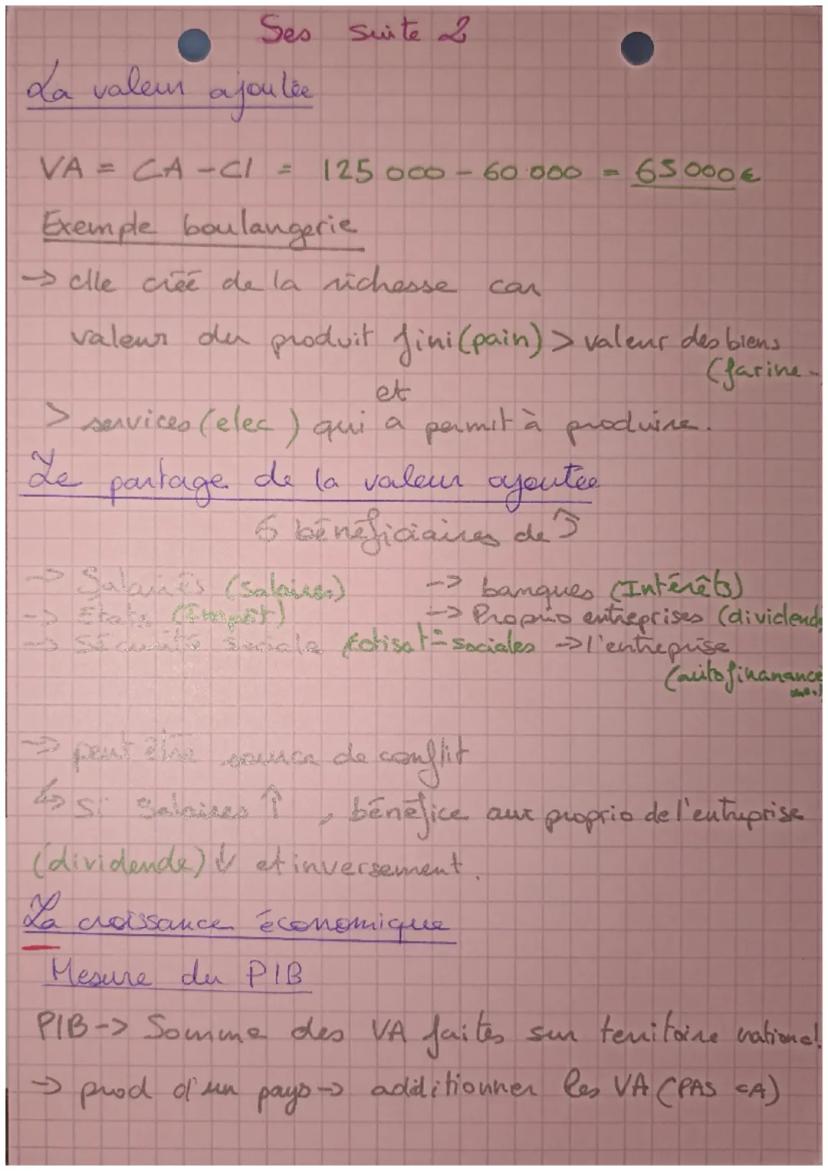 Ses suite 2
La valeur ajoutée
VA = CA - CI = 125 000 - 60 000 = 65 000€
Exemple boulangerie
-> elle créé de la richesse car
valeur du produit fini (pain) > valeur des biens
(farine-
et
> services (elec ) qui a permit à produire.
Le partage de la valeur ajoutée
6 bénéficiaires de
-> Salariés (salaires) -> banques (Intérêts)
-> Etats (Impôt) -> Proprio entreprises (dividend
-> Sécurité sociale cotisat° sociales -> l'entreprise
(autofinanance
-> peut être source de conflit
↳ si salaires ↑, bénéfice aux proprio de l'entreprise
(dividende) ↓ et inversement.
La croissance économique
Mesure du PIB
PIB -> Somme des VA faites sur territoire national
-> prod d'un pays -> additionner les VA (PAS CA)